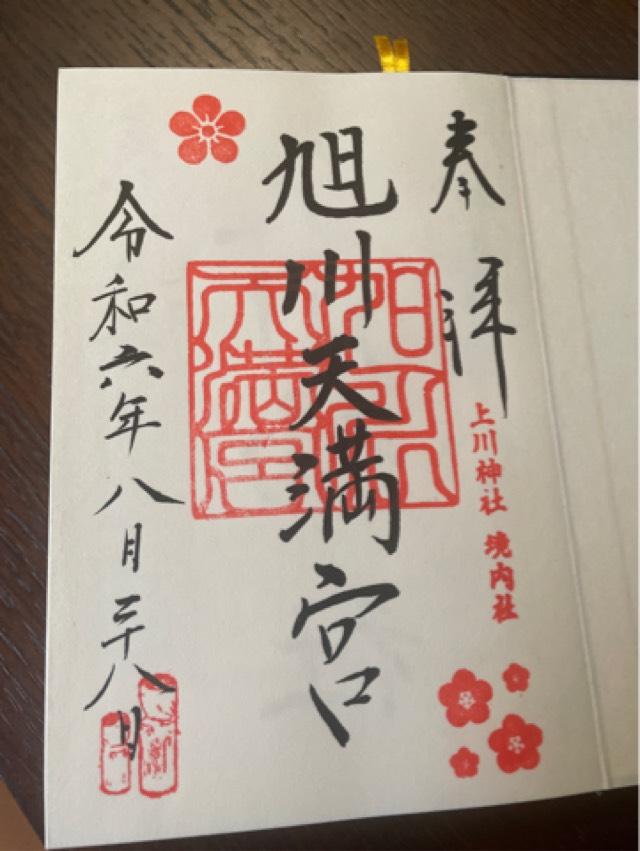 奉拝
上川神社 境内社
旭川天満宮
旭川
天満宮
令和六年八月二十八日